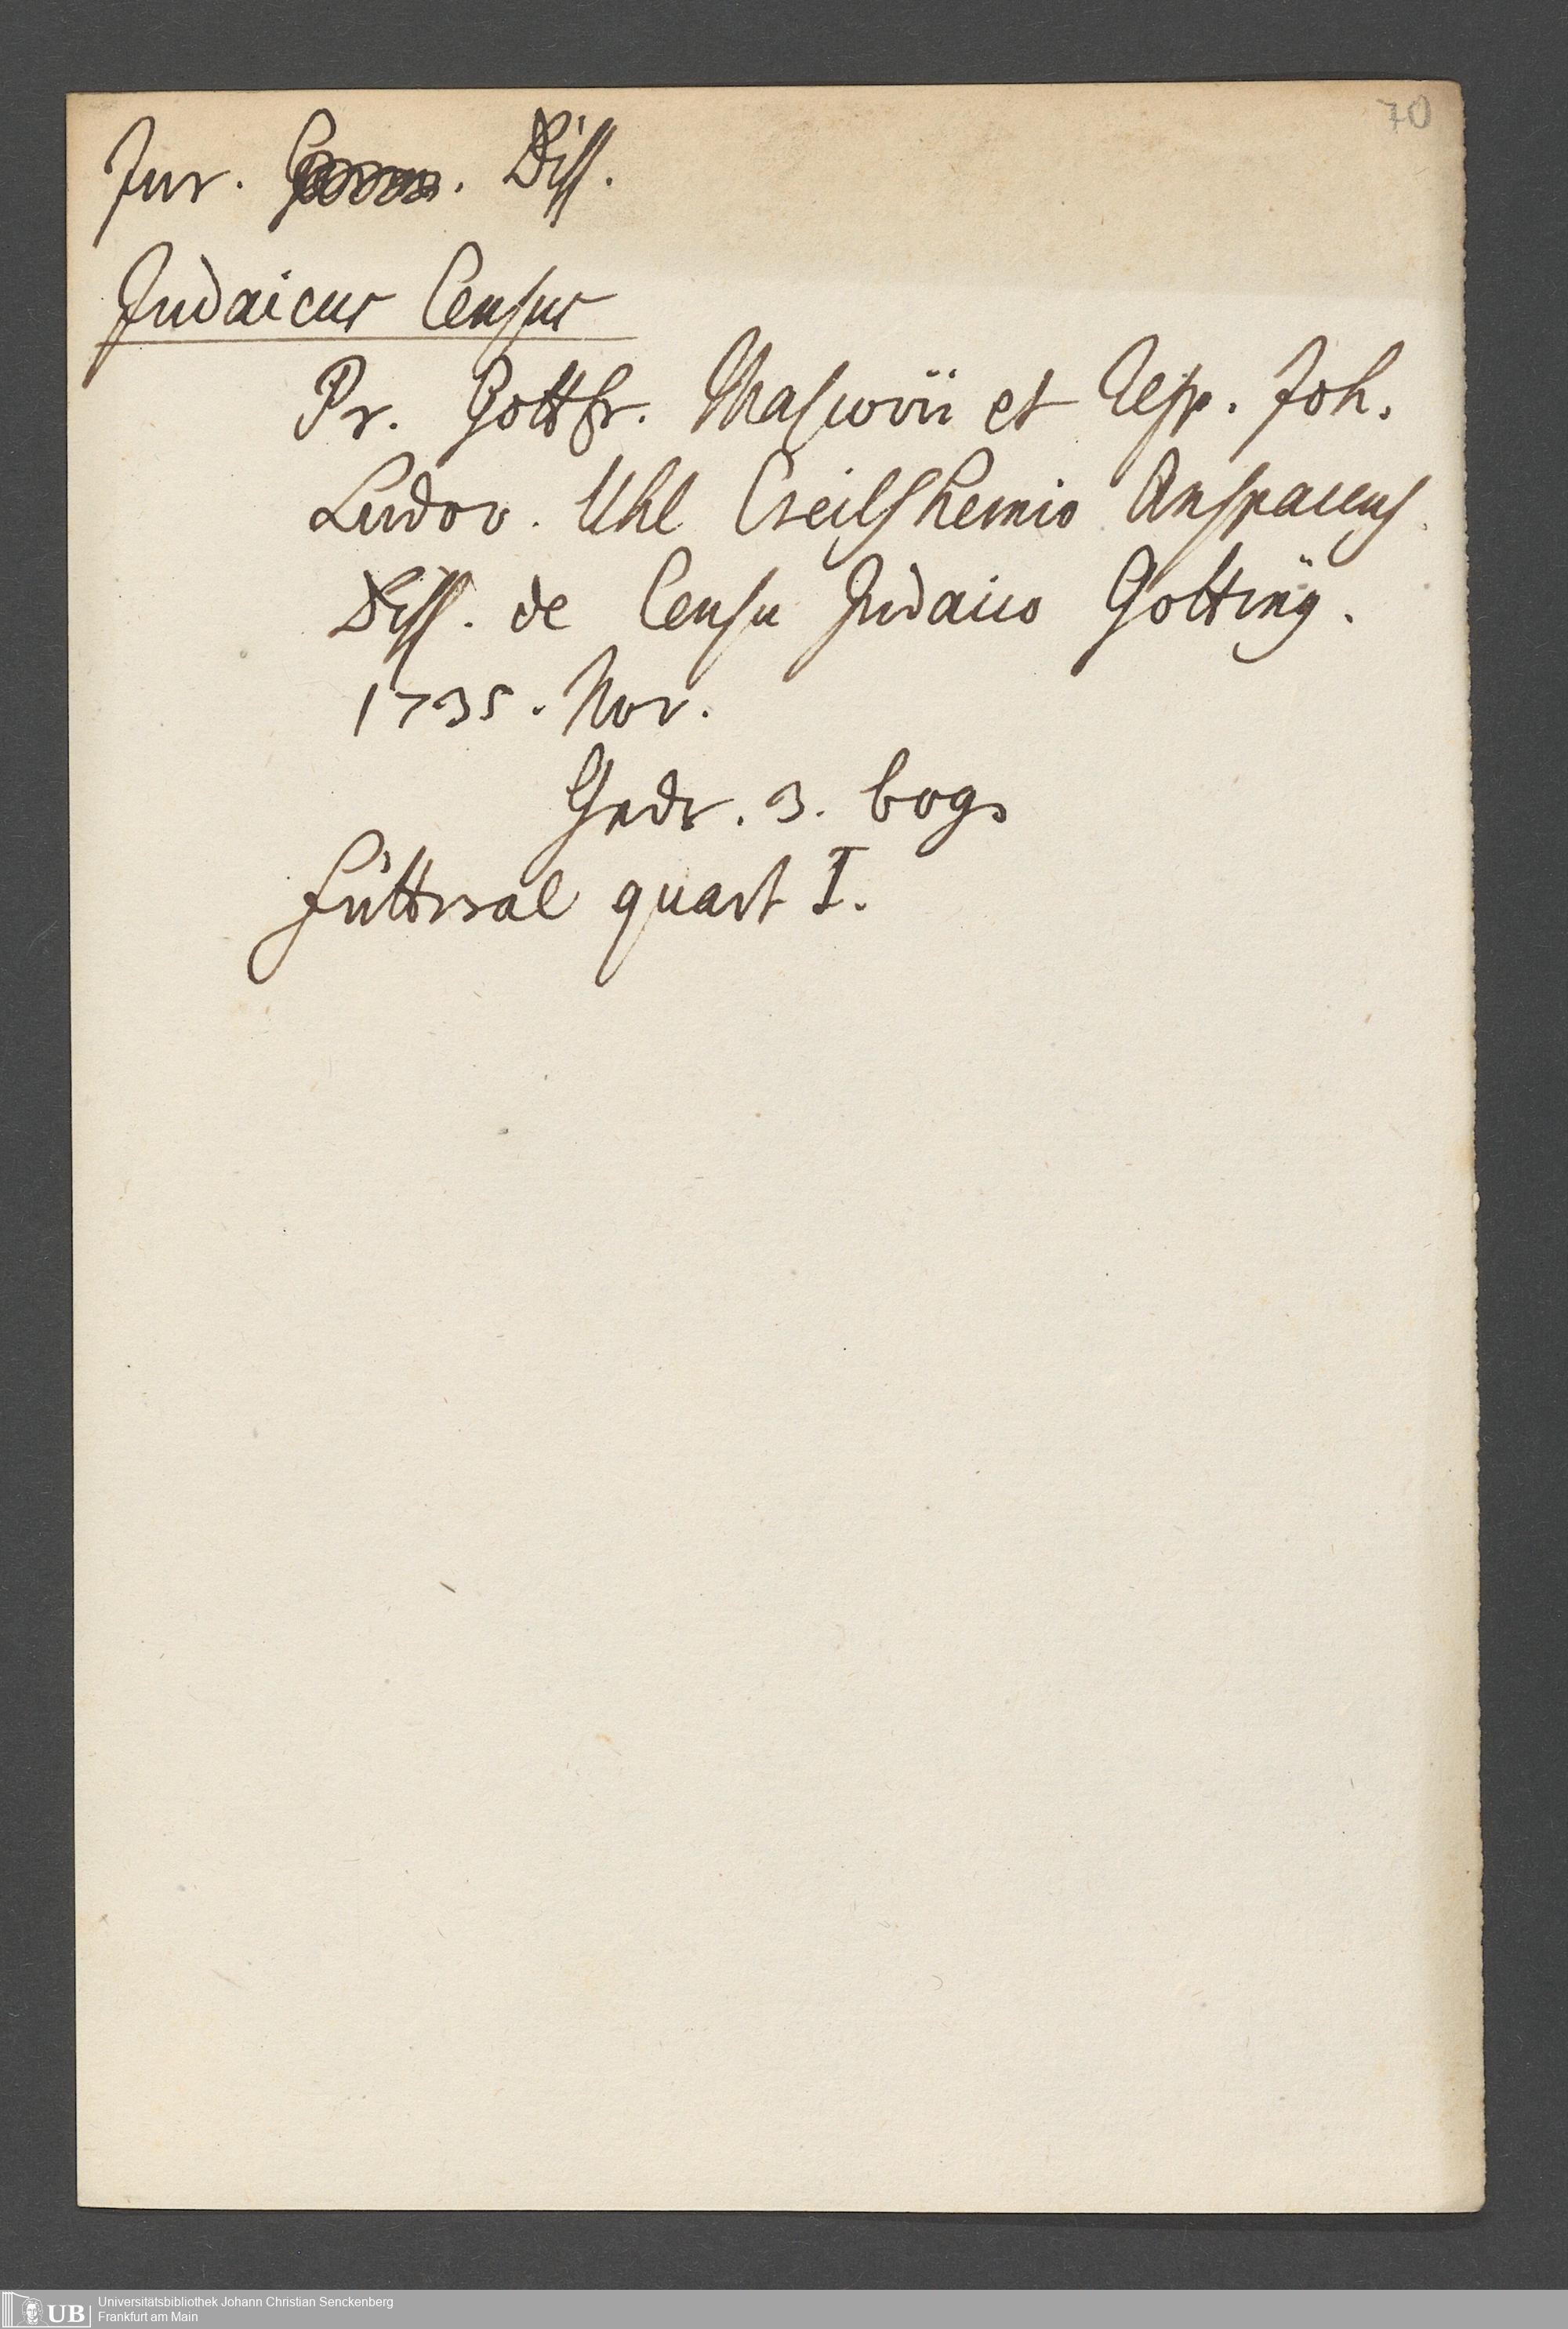 70
Jur. Diss.
Judaicus Census
Pr. Gottfr. Mascovii et Resp. Joh.
Ludov. Uhl Creilshemio Anspacens
Diss. de Censu Judaico Gotting.
1735. Nov.
Gedr. 3. bog.
quart I.
UB Universitätsbibliothek Johann Christian Senckenberg
Frankfurt am Main